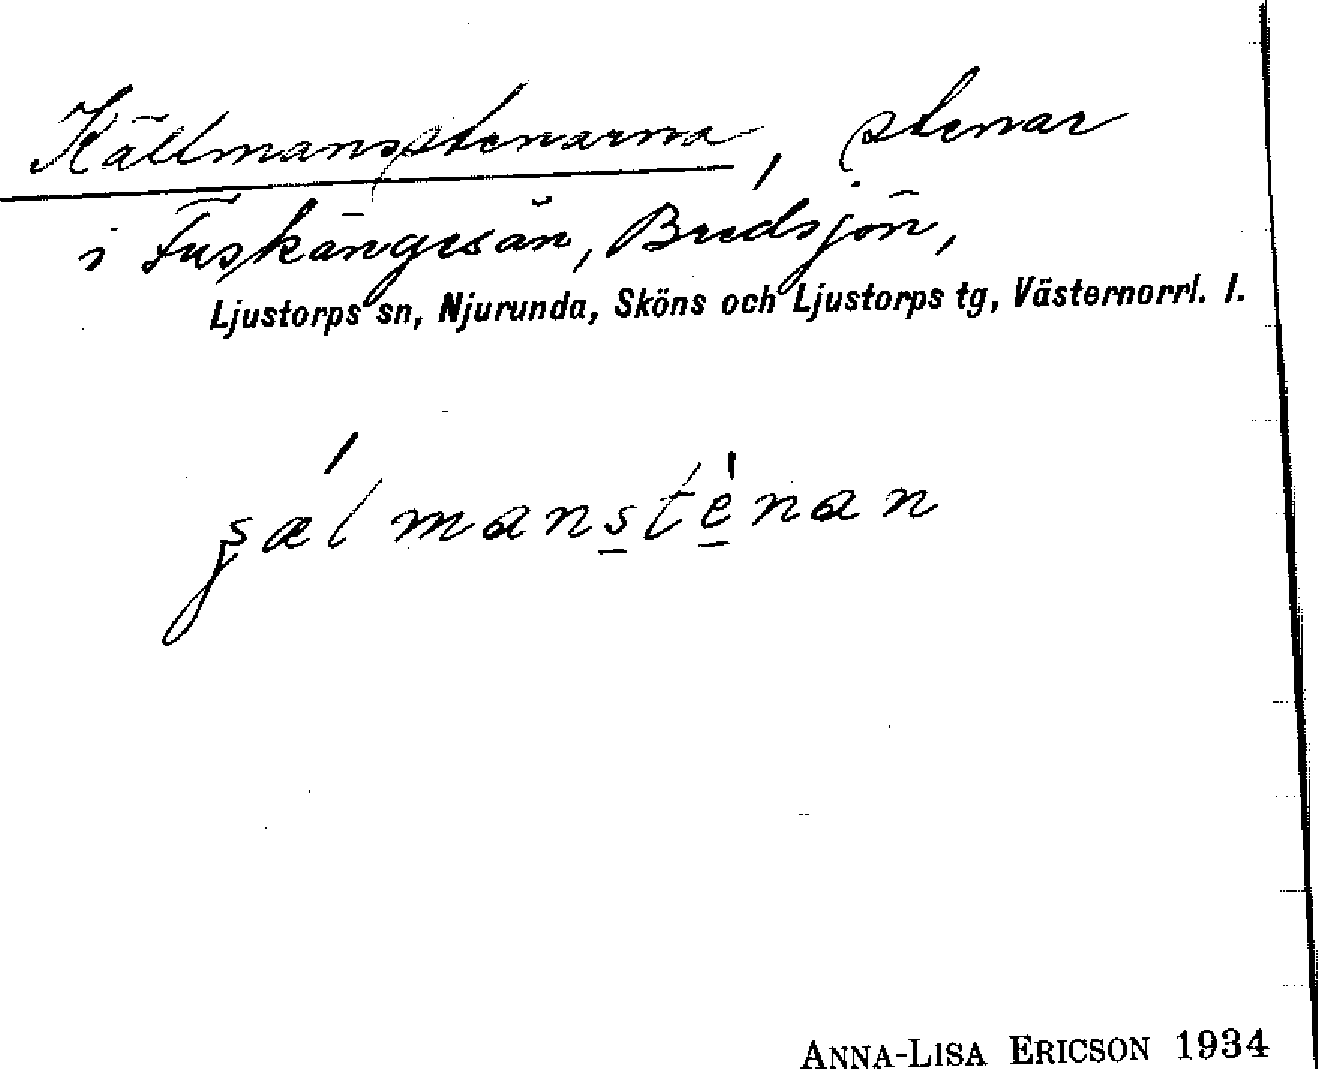 Källmansstenarna, stenar
i Fuskängesån, Bredsjön,
Ljustorps sn, Njurunda, Sköns och Ljustorps tg, Västernorrl. l.
ANNA-LISA ERICSON 1934